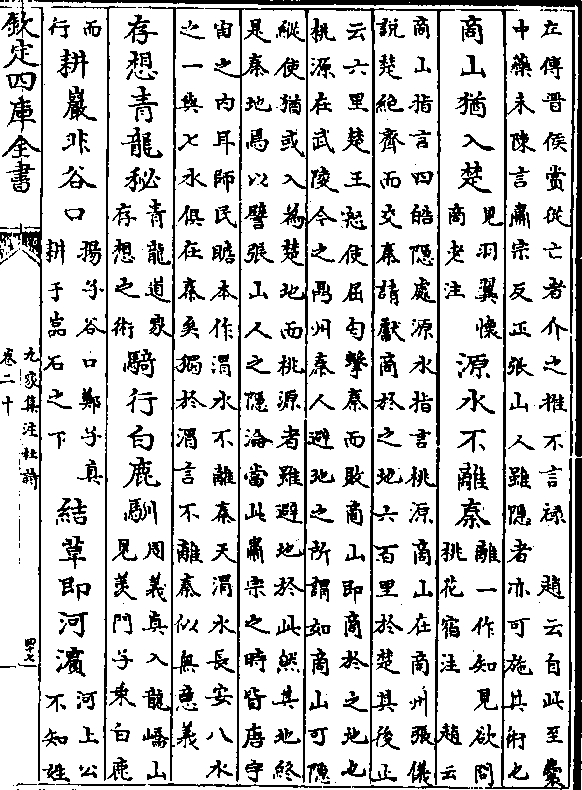 左傳晉侯賞從亡者介之推不言禄 趙云自此至橐
中藥未陳言肅宗反正張山人雖隱者亦可施其術也
商山猶入楚見羽翼懷商老注源水不離秦離一作知見欲問桃花宿注 趙云
商山指言四皓隱處源水指言桃源商山在商州張儀
說楚絶齊而交秦請獻商於之地六百里於楚其後止
云六里楚王怒使屈匄擊秦而敗商山即商於之地也
桃源在武陵今之鼎州秦人避地之所謂如商山可隱
縱使猶或入為楚地而桃源者雖避地於此然其地終
是秦地焉以譬張山人之隱淪當此肅宗之時皆唐宇
宙之内耳師民瞻本作渭水不離秦天渭水長安八水
之一與七水俱在秦矣獨於渭言不離秦似無意義
存想青龍秘青龍道家存想之術騎行白鹿馴周義真入龍嶠山見羨門子乘白鹿
而行耕巖非谷口揚子谷口鄭子真耕于巖石之下結草即河濵河上公不知姓
欽定四庫全書
九家集注杜詩
卷二十
四十七